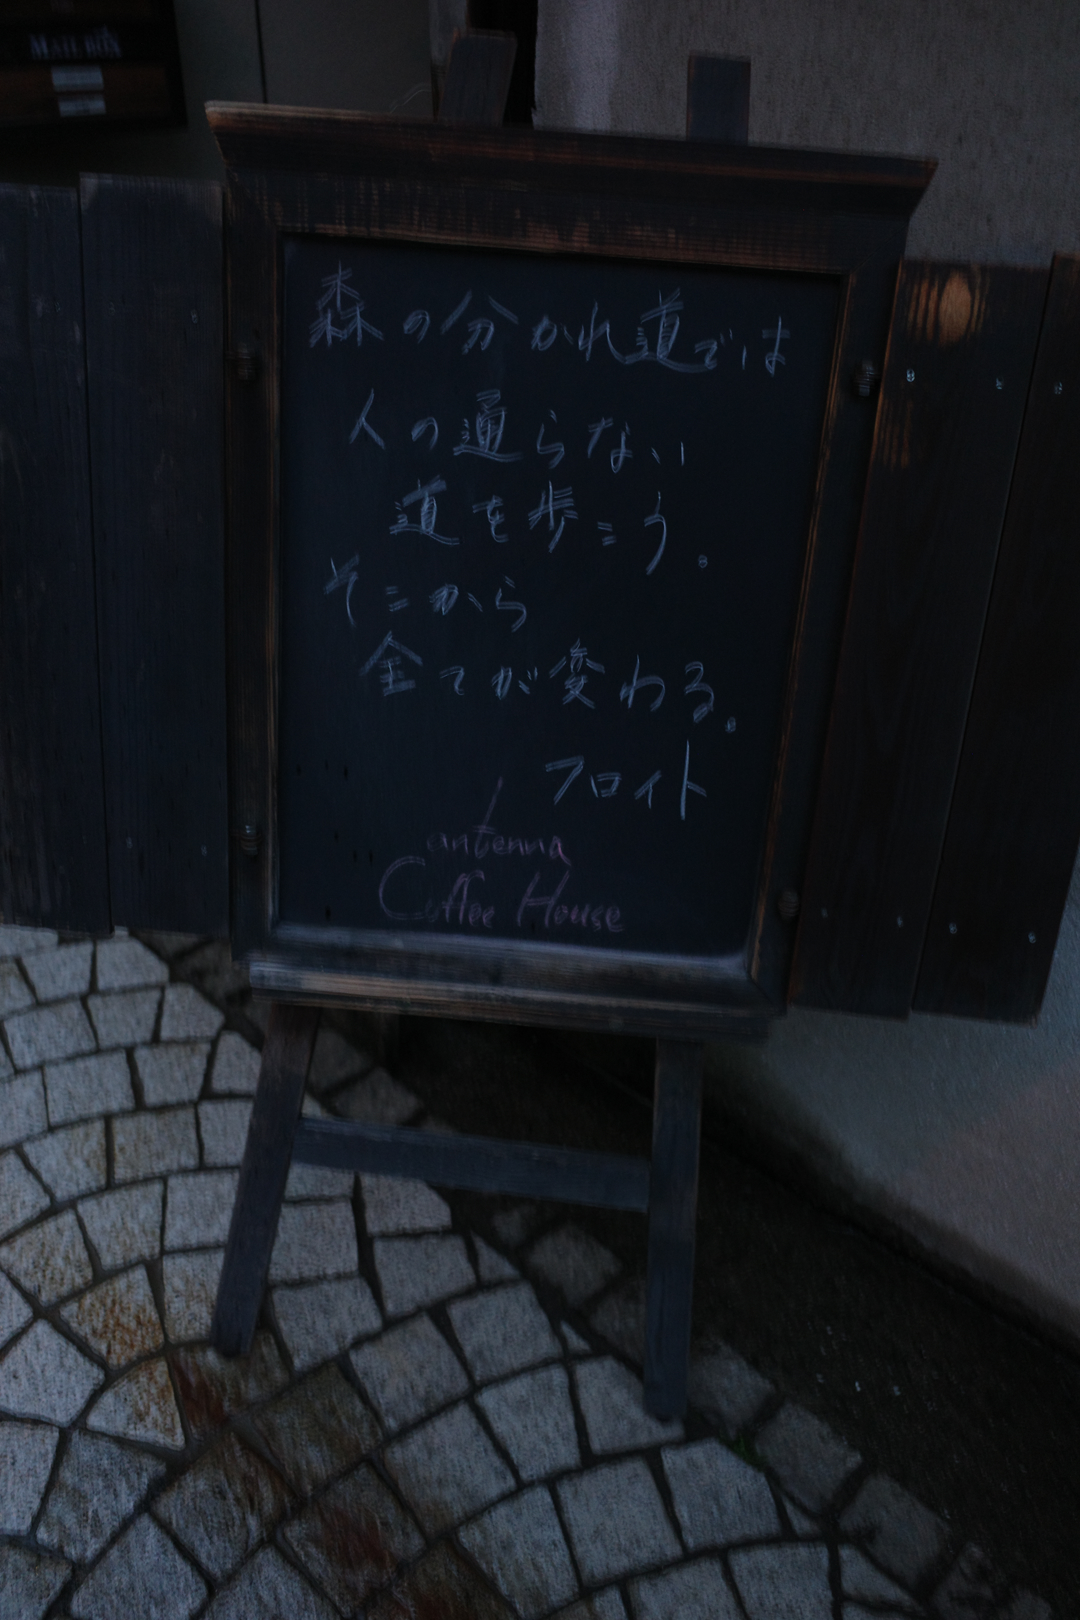 MAIL BOX
森の分かれ道では
人の通らない
道を歩こう。
そこから
全てが変わる。
フロイト
antenna
Coffee House